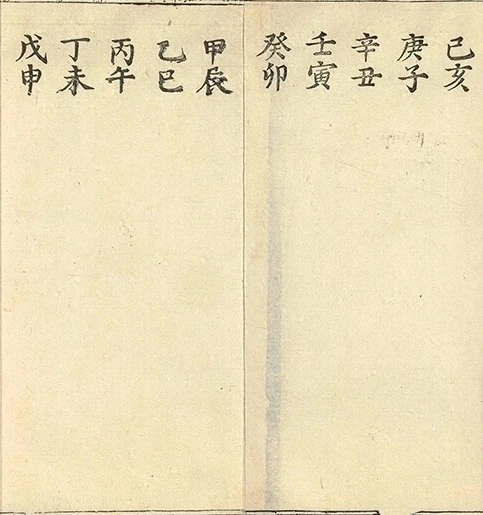 己亥
庚子
辛丑
壬寅
癸卯
甲辰
乙巳
丙午
丁未
戊申